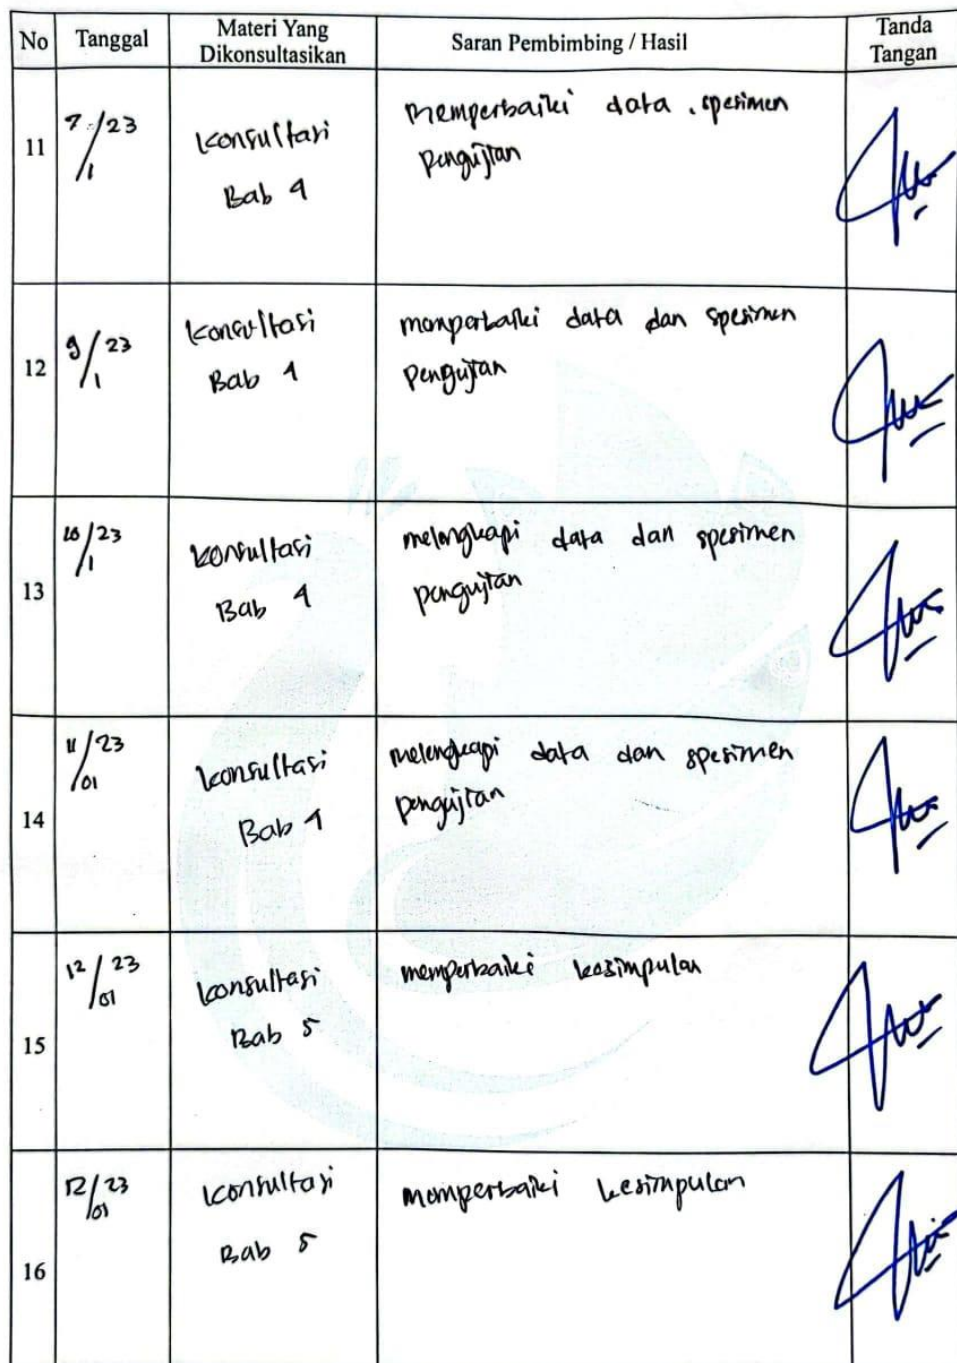 No Tanggal Materi Yang Dikonsultasikan Saran Pembimbing / Hasil Tanda Tangan
11 7/1 23 Konsultasi memperbaiki data spesimen
Bab 4 pengujian
12 9/1 23 Konsultasi memperbaiki data dan spesimen
Bab 4 pengujian
13 10/1 23 Konsultasi melengkapi data dan spesimen
Bab 4 pengujian
14 11/01 23 Konsultasi melengkapi data dan spesimen
Bab 4 pengujian
15 12/01 23 Konsultasi memperbaiki kesimpulan
Bab 5
16 12/01 23 Konsultasi memperbaiki kesimpulan
Bab 5